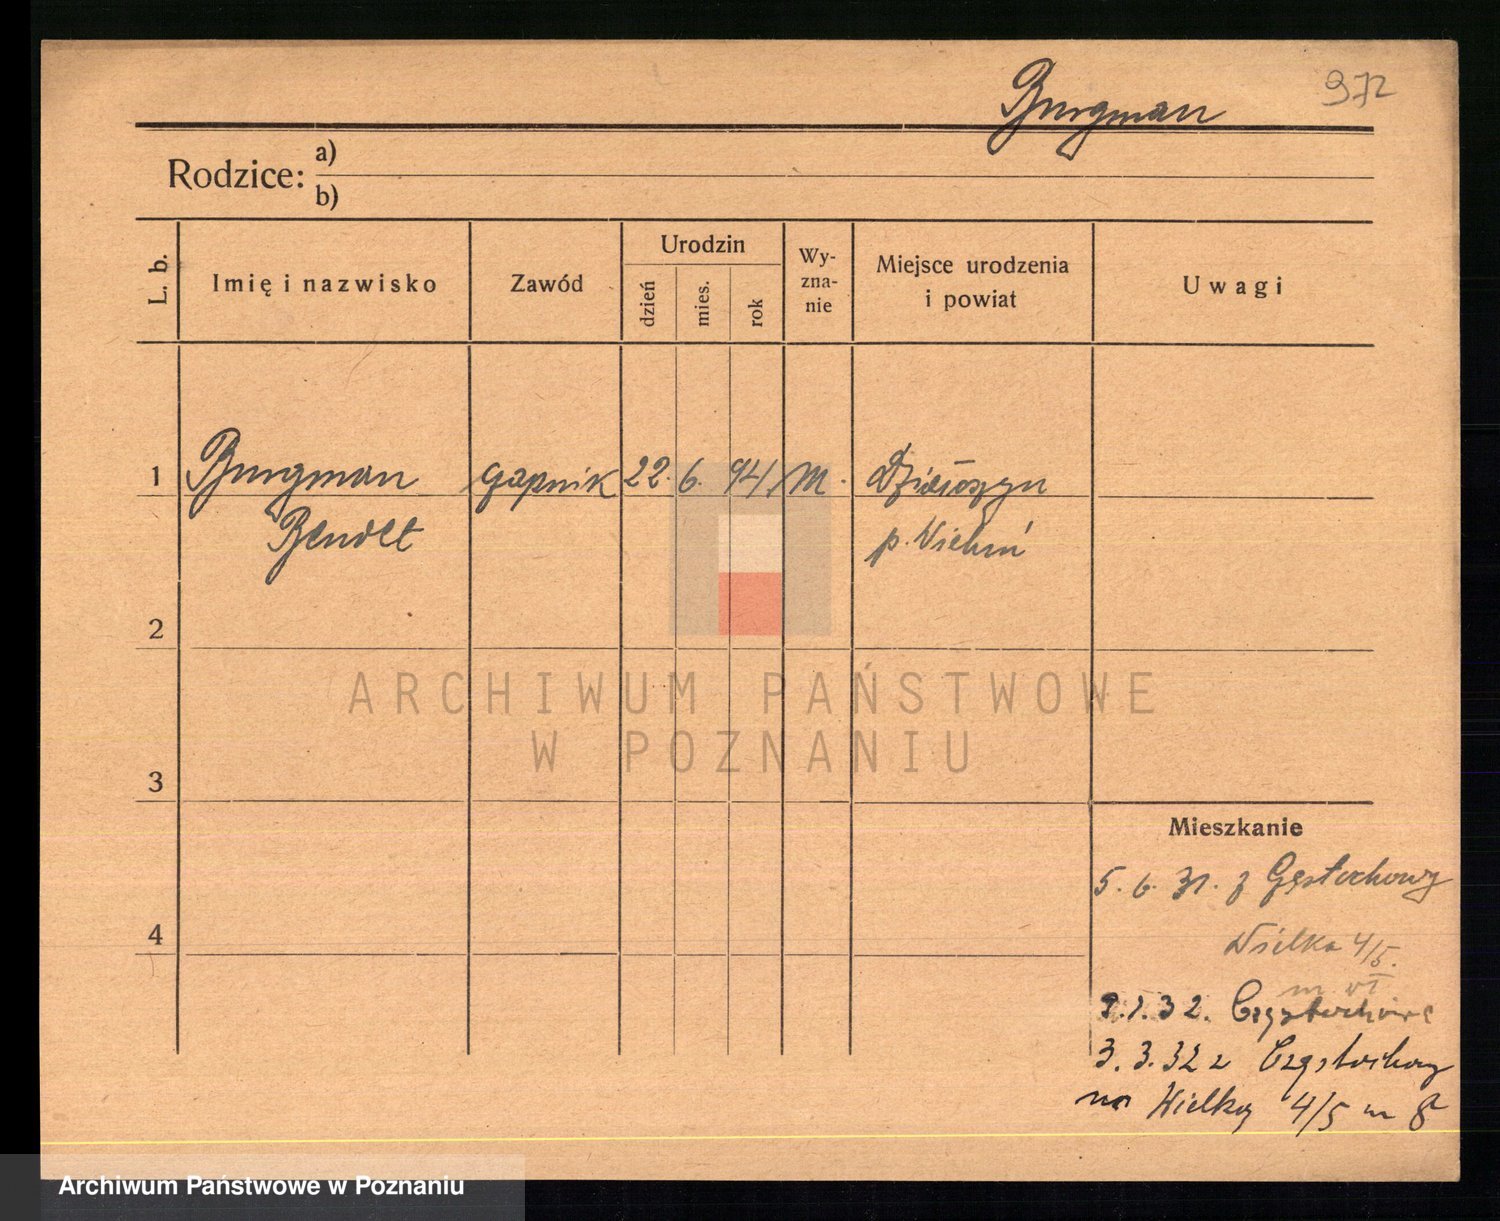 Burgman 972
Rodzice: a)
b)
L. b. Imię i nazwisko Zawód Urodzin dzień mies. rok Wy-zna-nie Miejsce urodzenia i powiat Uwagi
1 Burgman czapnik 22. 6. 94. M. Działoszyn
Bendet p. Wieluń
2
ARCHIWUM PAŃSTWOWE
W POZNANIU
3
Mieszkanie
5. 6. 31. z Częstochowy
4
Wielka 4/5.
m. VI
1. 32. Częstochowa
3. 3. 32 z Częstochowy
na Wielką 4/5 m 8
Archiwum Państwowe w Poznaniu